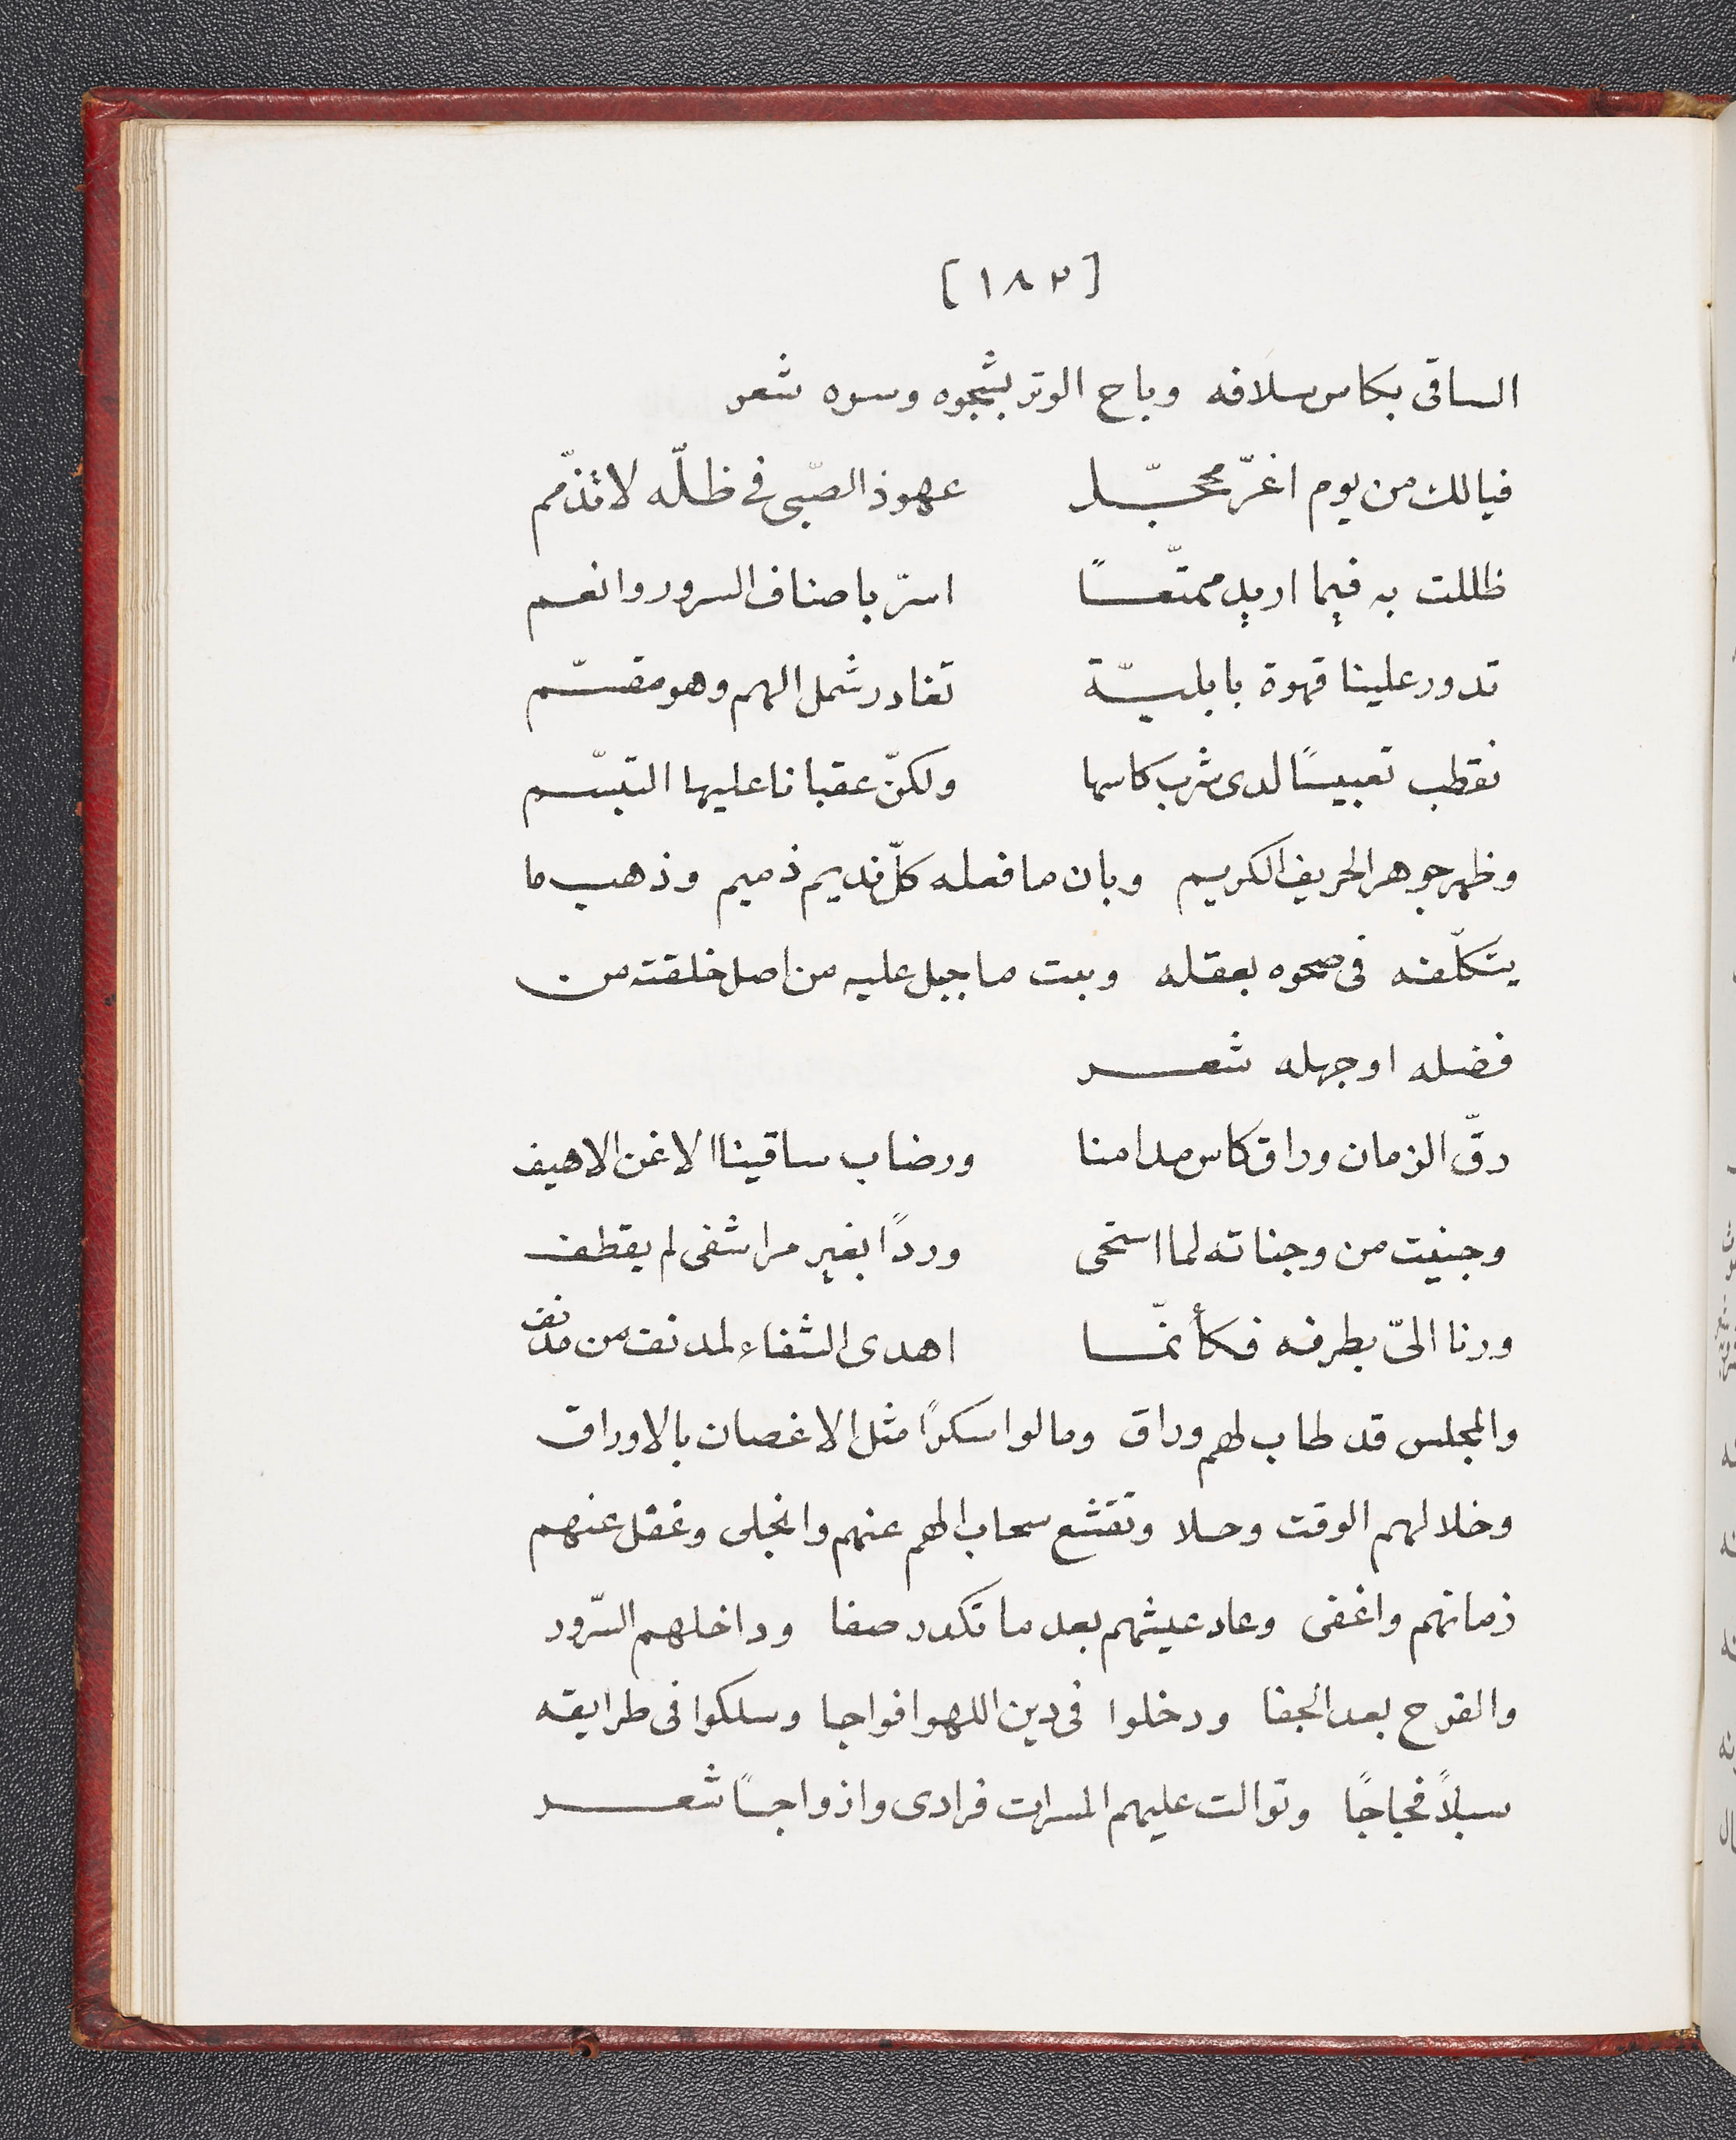 [١٨٢]
الساقى بكاس سلافه وباح الوتر بشجوه وسره شعر
فيالك من يوم اغرّ محجّل عهوذ الصّبى فى ظلّه لا تذمّم
ظللت به فيما اريد ممتّعًا اسرّ باصناف السرور وانعم
تدور علينا قهوة بابليّة تغادر شمل الهم وهو مقسّم
نقطب تعبيسًا لدى شرب كاسها ولكنّ عقبانا عليها التبسّم
وظهر جوهر الحريف الكريم وبان ما فعله كلّ نديم ذميم وذهب ما
يتكلّفه فى صحوه بعقله وبت ما جبل عليه من اصل خلقته من
فضله او جهله شعر
رقّ الزمان وراق كاس مدامنا ورضاب ساقينا الاغن الاهيف
وجنيت من وجناته لما استحى وردًا بغير مراشفى لم يقطف
ورنا الىّ بطرفه فكأنّما اهدى الشفاء لمدنف من مدنف
والمجلس قد طاب لهم وراق ومالوا سكرًا مثل الاغصان بالاوراق
وخلا لهم الوقت وحلا وتقشع سحاب الهم عنهم وانجلى وغفل عنهم
زمانهم واغفى وعاد عيشهم بعد ما تكدر صفا وداخلهم السّرور
والفرح بعد الجفا ودخلوا فى دين اللهو افواجا وسلكوا فى طرايقه
سبلاً فجاجًا وتوالت عليهم المسرات فرادى وازواجًا شعر